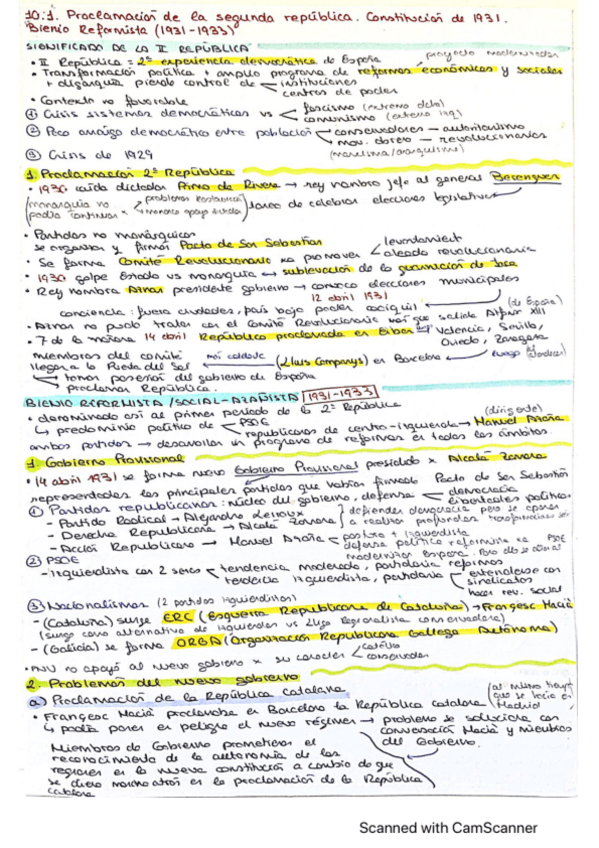 10.1. Proclamación de la segunda república. Constitución de 1931.
Bienio Reformista (1931-1933)
SIGNIFICADO DE LA II REPÚBLICA
• II República = 2ª experiencia democrática de España
proyecto modernizador
• Transformación política + amplio programa de reformas económicas y sociales
+ oligarquía pierde control de instituciones
centros de poder
• Contexto no favorable
① Crisis sistemas democráticos vs fascismo (extrema dcha)
comunismo (extrema izq)
② Poco arraigo democrático entre población conservadores - autoritarismo
mov. obrero - revolucionarios
(marxismo/anarquismo)
③ Crisis de 1929
1. Proclamación 2ª República
• 1930 caída dictador Primo de Rivera → rey nombra jefe al general Berenguer
(monarquía no podía continuar x problemas
monarca apoyó dictador)
tarea de celebrar elecciones legislativas
• Partidos no monárquicos
se organizan y firman Pacto de San Sebastián
• Se forma Comité Revolucionario xa promover levantamient
aleado revolucionaria
• 1930 golpe Estado vs monarquía → sublevación de la guarnición de Jaca
• Rey nombra Aznar presidente gobierno → convoca elecciones municipales
12 abril 1931
conciencia: fuera ciudades, país bajo poder caciquil
• Aznar no pudo tratar con el Comité Revolucionario más que salida Alfonso XIII
(de España)
• 7 de la mañana 14 abril República proclamada en Eibar → Valencia, Sevilla,
Oviedo, Zaragoza
miembros del comité más adelante (Lluis Companys) en Barcelona luego
llegan a la Puerta del Sol
→ toman posesión del gobierno de España
→ proclaman República.
BIENIO REFORMISTA /SOCIAL-AZAÑISTA (1931-1933)
• denominado así al primer periodo de la 2ª República
→ predominio político de PSOE
republicanos de centro-izquierda → Manuel Azaña
(dirigente)
ambos partidos → desarrollar un programa de reformas en todos los ámbitos
1. Gobierno Provisional
• 14 abril 1931 se forma nuevo Gobierno Provisional presidido x Alcalá Zamora
representados los principales partidos que habían firmado Pacto de San Sebastián
① Partidos republicanos: núcleo del gobierno, defensa democracia
libertades políticas
- Partido Radical → Alejandro Lerroux
- Derecha Republicana → Alcalá Zamora
defienden democracia pero se oponen
a realizar profundas transformaciones
- Acción Republicana → Manuel Azaña postura + izquierdista
defensa política reformista xa
modernizar España. Para ello se alía al PSOE
② PSOE
- izquierdista con 2 seres tendencia moderada, partidaria reformas
tendencia izquierdista, partidaria extenderse con
sindicatos
hacer rev. social
③ Nacionalismos (2 partidos izquierdistas)
- (Cataluña) surge ERC (Esquerra Republicana de Cataluña) → Francesc Macià
(surge como alternativa de izquierdas vs Lliga Regionalista conservadora)
- (Galicia) se forma ORGA (Organización Republicana Gallega Autónoma)
• PNV no apoyó al nuevo gobierno x su carácter católico
conservador
2. Problemas del nuevo gobierno
a) Proclamación de la República catalana
• Francesc Macià proclamaba en Barcelona la República catalana
(al mismo tiempo que se hacía en Madrid)
→ podía poner en peligro el nuevo régimen → problema se soluciona con
conversación Macià y miembros
del Gobierno.
Miembros de Gobierno prometieron el
reconocimiento de la autonomía de las
regiones en la nueva constitución a cambio de que
se diera marcha atrás en la proclamación de la República
catalana
Scanned with CamScanner